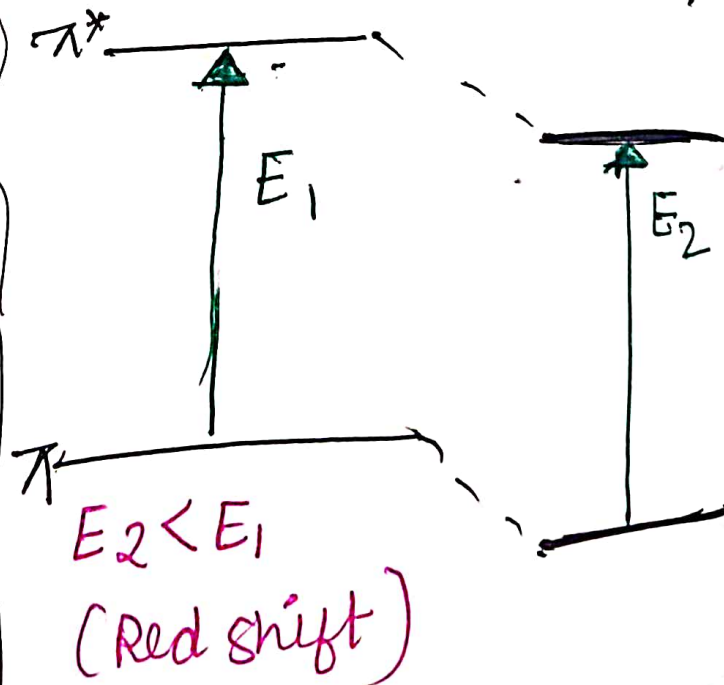 π*
E₁
E₂
π
E₂<E₁
(Red shift)